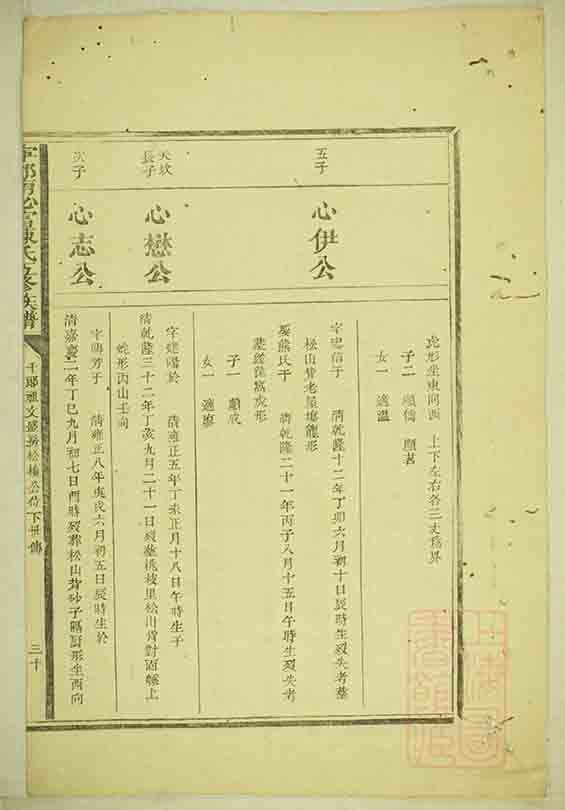 虎形坐東向西 上下左右各三丈爲界
子二 顯儒 顯茗
女一 適溫
五子
心伊公
字忠信子 清乾隆十二年丁卯六月初十日辰時生歿失考墓
松山背老屋塲龍形
娶熊氏于 清乾隆二十一年丙子八月十五日午時生歿失考
虎形
子一 顯成
女一 適廖
天坎
長子
心懋公
字建陽於 清雍正五年丁未正月十八日午時生于
清乾隆三十二年丁亥九月二十一日歿墓桃枝里松山背對面
蛇形丙山壬向
次子
心志公
字明芳于 清雍正八年庚戌六月初五日辰時生於
清嘉慶二年丁巳九月初七日酉時歿葬松山背砂子隔形坐西向
氏五修族譜
千郎祖文盛房松公位下世傳
三十